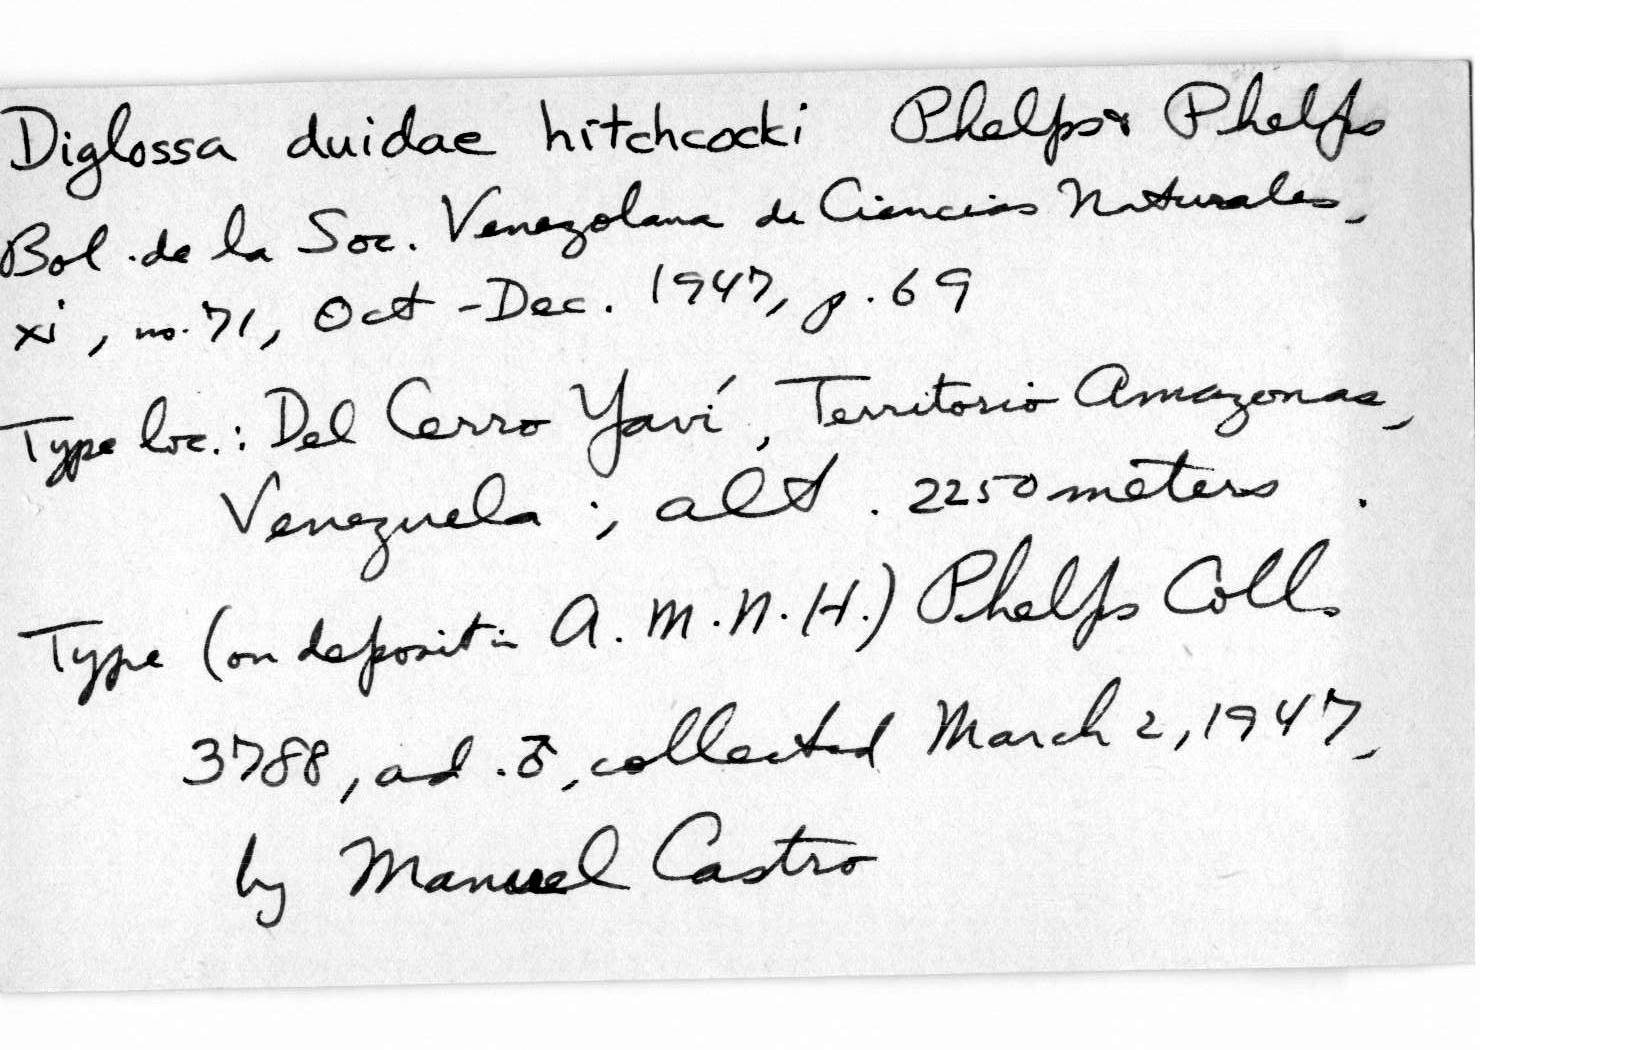 Diglossa duidae hitchcocki Phelps & Phelps
Bol. de la Soc. Venezolana de Ciencias Naturales,
xi, no. 71, Oct - Dec. 1947, p. 69
Type loc.: Del Cerro Yaví, Territorio Amazonas,
Venezuela; alt. 2250 meters.
Type (on deposit in A.M.N.H.) Phelps Coll.
3788, ad. ♂, collected March 2, 1947,
by Manuel Castro